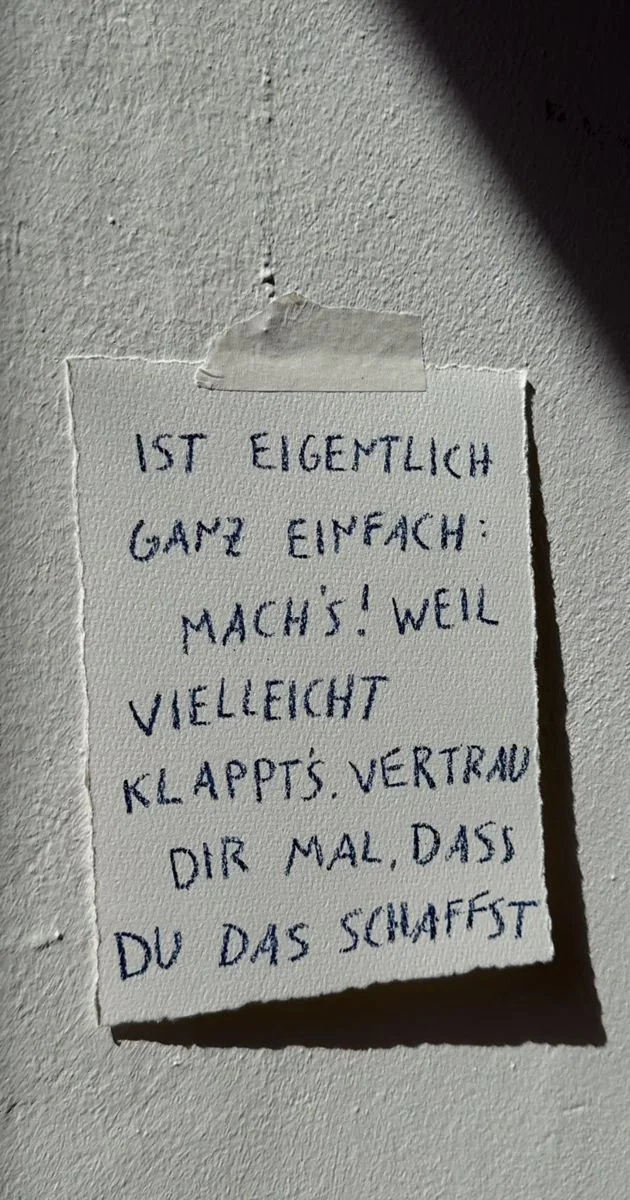 IST EIGENTLICH
GANZ EINFACH:
MACH'S! WEIL
VIELLEICHT
KLAPPT'S. VERTRAU
DIR MAL, DASS
DU DAS SCHAFFST